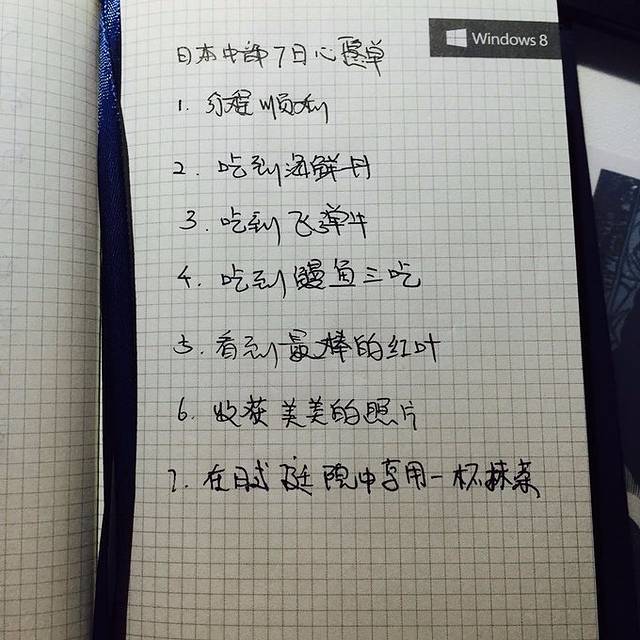 Windows 8
日本中部7日心愿单
1. 行程顺利
2. 吃到海鲜丼
3. 吃到飞弹牛
4. 吃到鳗鱼三吃
5. 看到最棒的红叶
6. 收获美美的照片
7. 在日式庭院中享用一杯抹茶